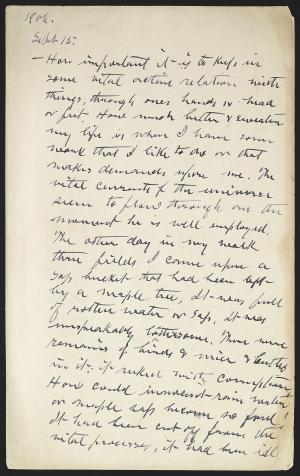 1906.
Sept 15.
— How important it is to keep in
some vital active relation with
things, through ones hands or head
or feet. How much better & sweeter
my life is when I have some
work that I like to do or that
makes demands upon me. The
vital currents of the universe
seem to flow through one the
moment he is well employed.
The other day in my walk
thro fields I came upon a
sap bucket that had been left
by a maple tree, it was full
of rotten water or sap. It was
unspeakably loathsome. There were
remains of birds & mice &
in it; it reeked with corruption.
How could innocent rain water
or maple sap become so foul!
It had been cut off from the
vital processes, it had been